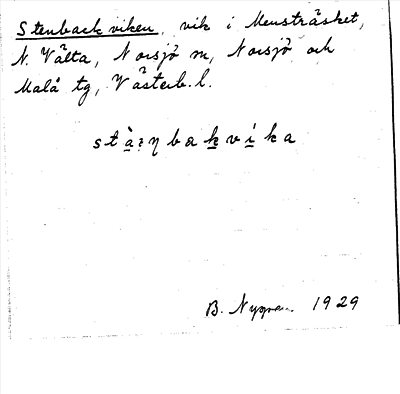 Stenbackviken, vik i Mensträsket,
N. Välta, Norsjö sn, Norsjö och
Malå tg, Västerb. l.
B. Nygren 1929